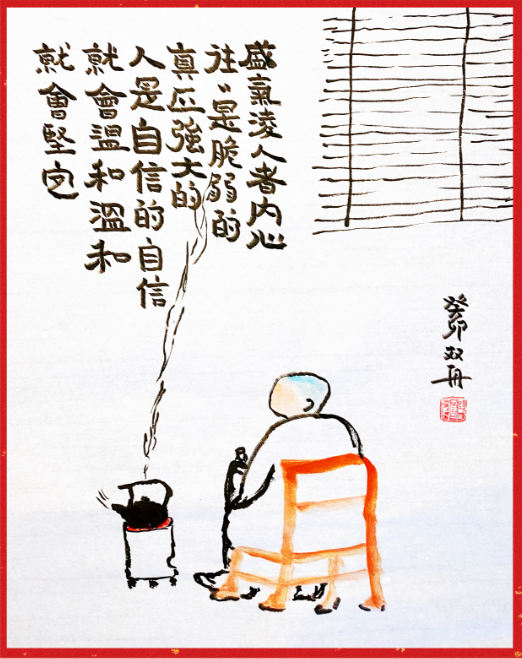 盛氣淩人者内心
往〻是脆弱的
真正強大的
人是自信的自信
就會溫和溫和
就會堅定
癸卯双丹